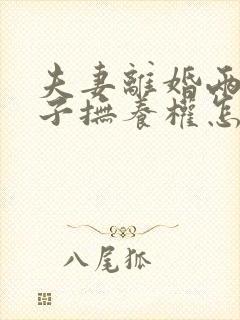 夫妻離婚兩
子撫養權怎
八尾狐